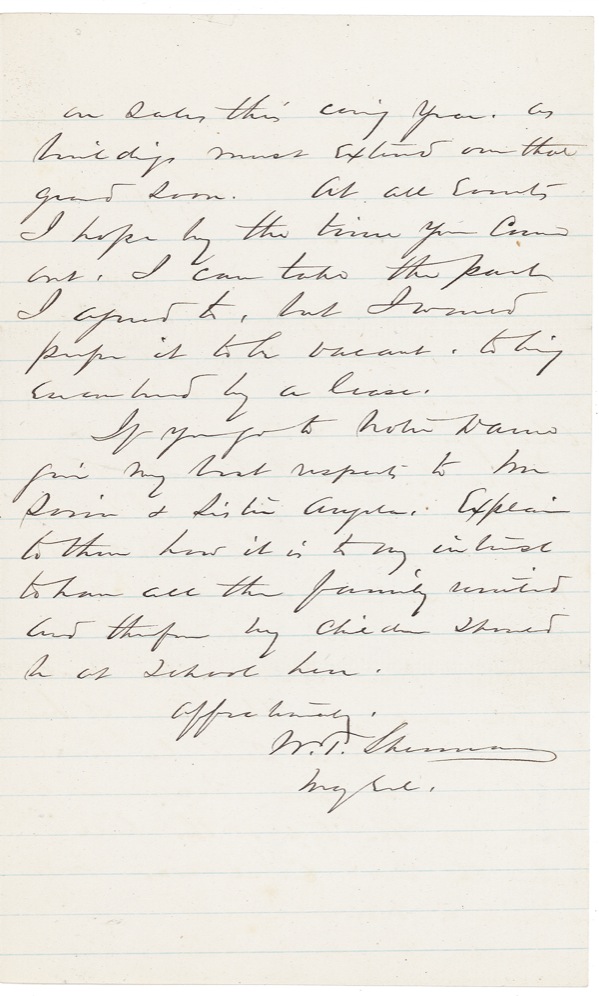 on Sales this coming Year. as
buildings must Extend over that
ground soon. At all Events
I hope by the time you Come
out, I can take the part
I agreed to, but I would
prefer it to be vacant, to being
Encumbered by a lease.
If you go to Notre Dame
give my best respects to Mr
Sorin & Sister Angela. Explain
to them how it is to my interest
to have all the family united
and therefore my children should
be at School here.
Affectionately,
W.T. Sherman